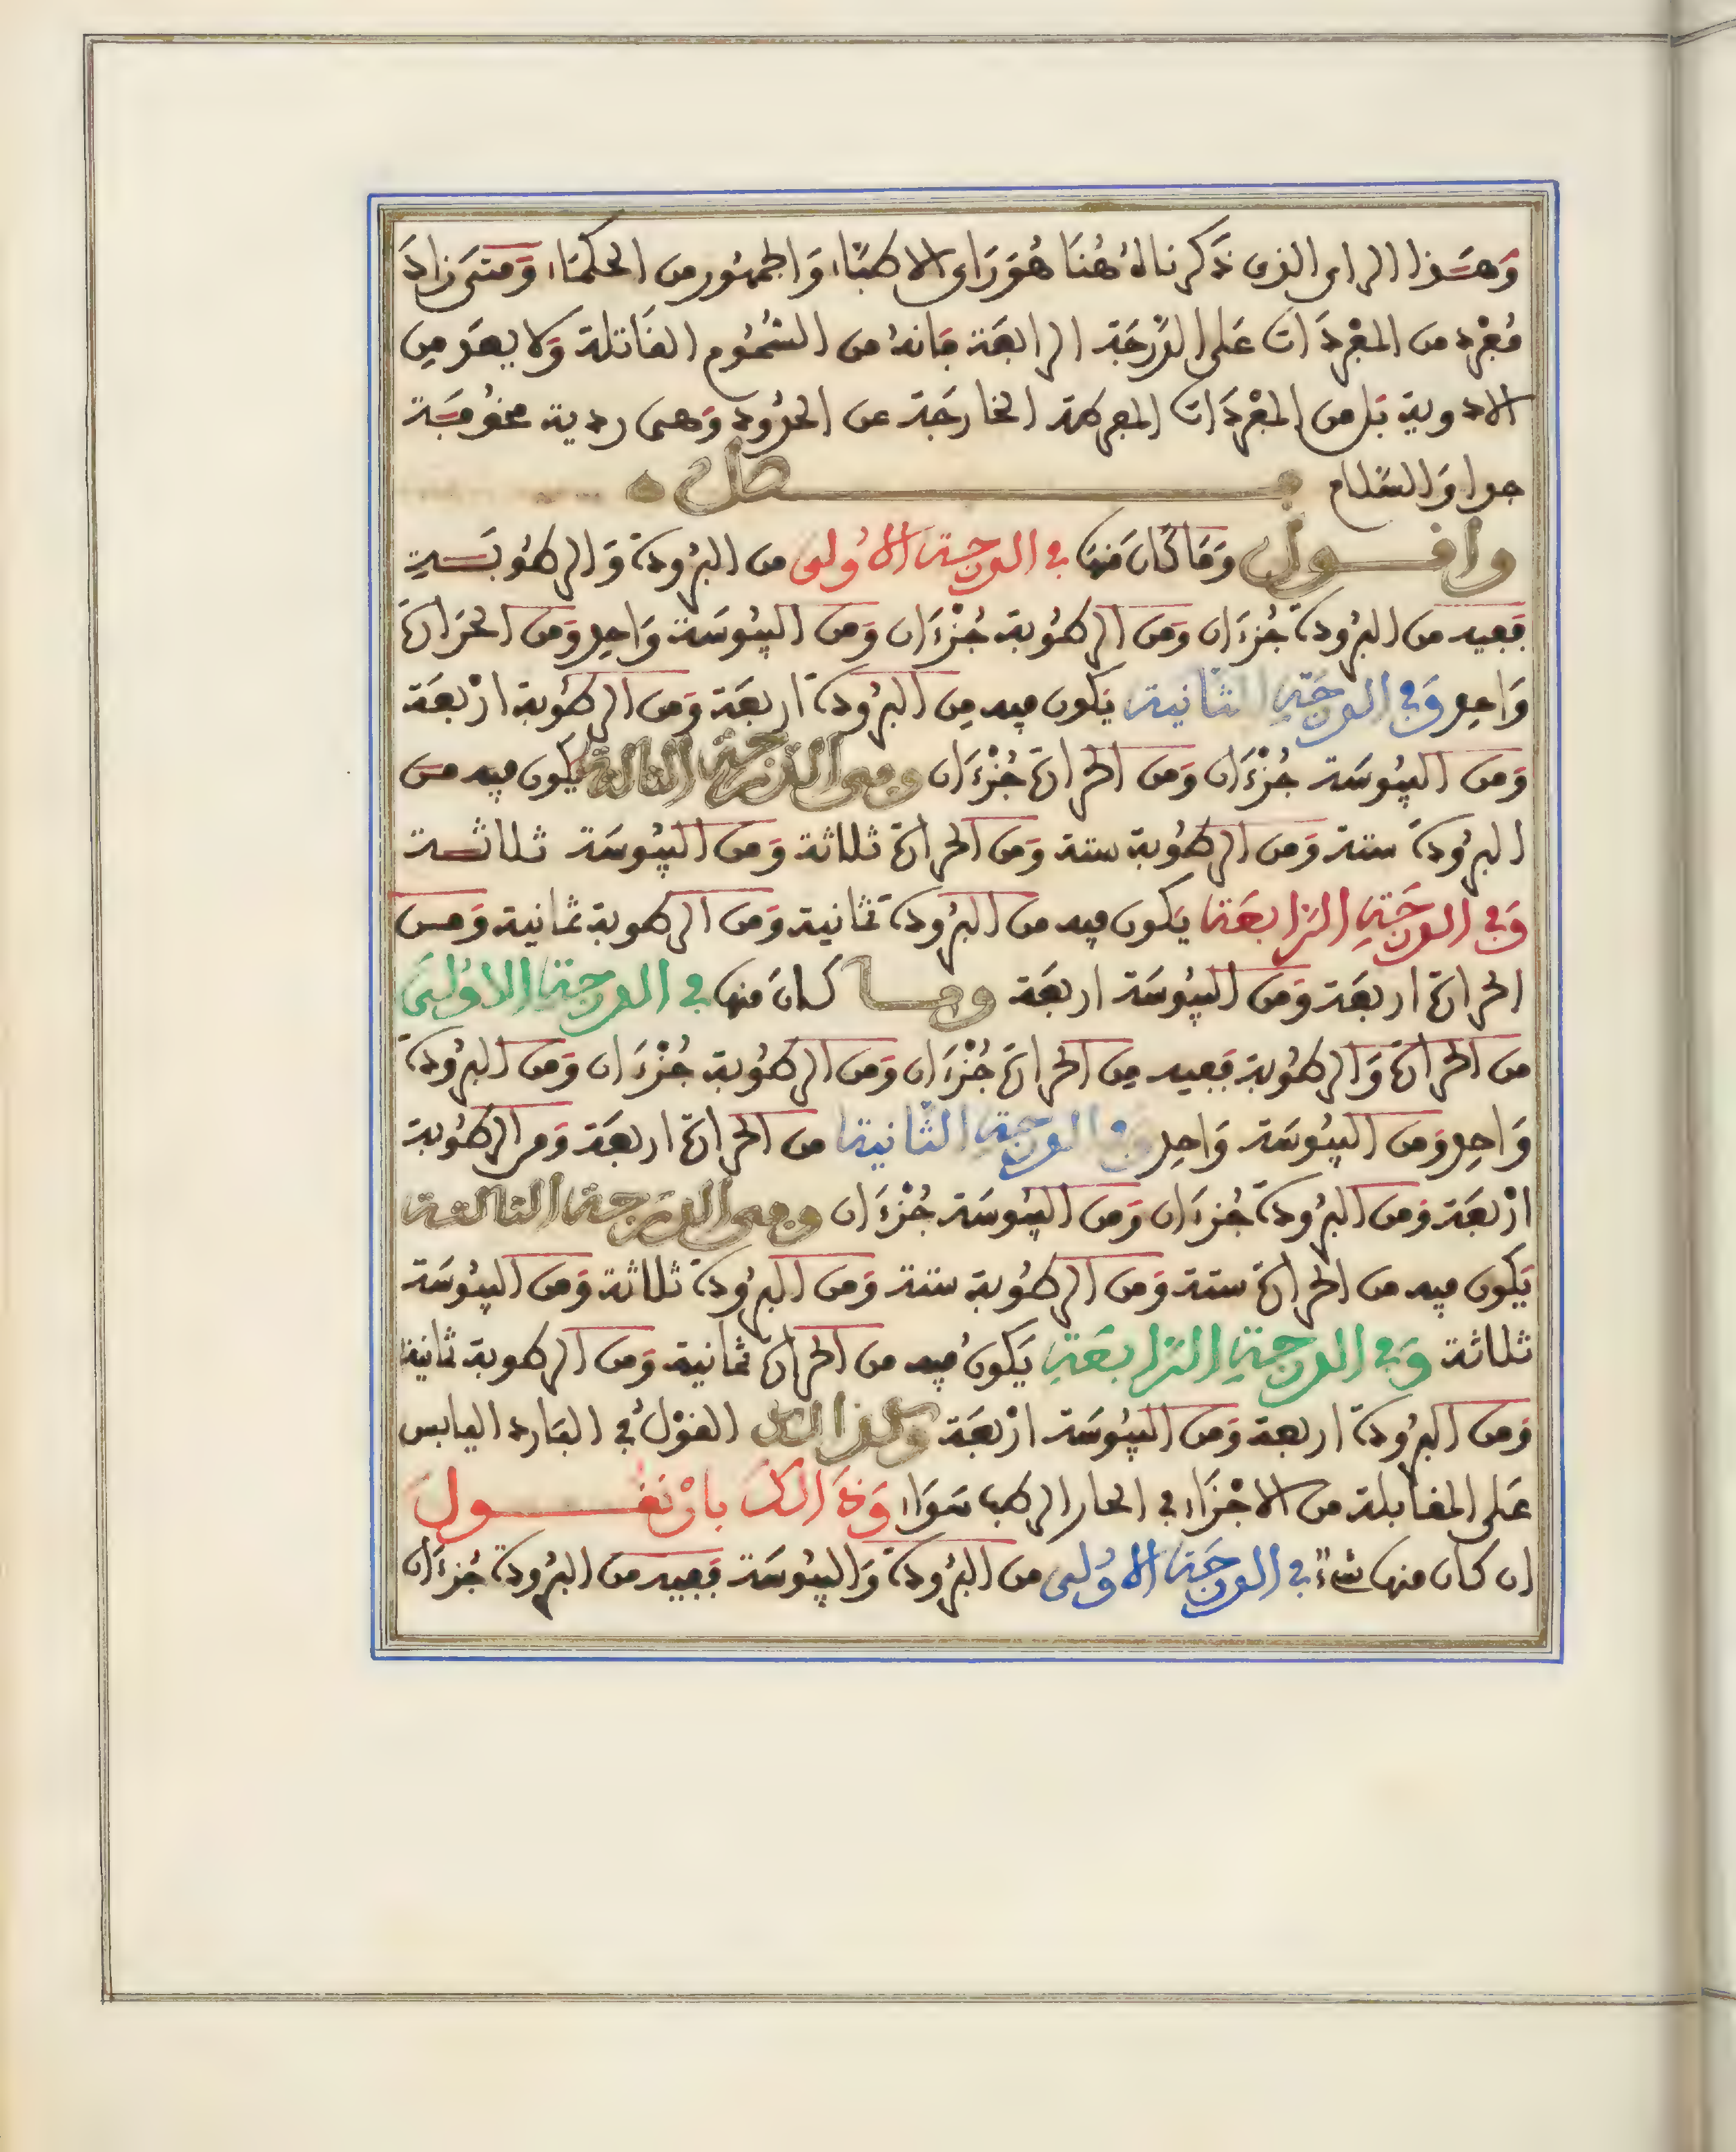 وَهَذا الراى الذى ذَكرناهُ هُنَا هُوَ رَاى الاطبّاء وَالجمهُور من الحكمَاء وَمتَى زادَ
مُفْرد من المفْردَات عَلى الدّرَجَة الرابعَة فَانهُ من السُّمُوم القَاتلة وَلا يعَد مِن
الادوية بَل من المفْردَات المفرطة الخارجَة عن الحدُود وَهى ردية مخوُفَة
جدا وَالسّلام فصل
واقول وَمَا كانَ مَنها فى الدرجة الاُولى من البرُودة وَالرطوبَة
فَفيه من البرُودة جُزءَان وَمن الرطُوبة جُزْءَان وَمن اليبُوسَة وَاحِد وَمن الحَرَارة
وَاحِد وَفى الدرجَةِ الثانيَة يَكون فيه مِن البرُودة اربعَة وَمن الرطُوبة ارْبعَة
وَمن اليبُوسَة جُزْءَان وَمن الحرارة جُزْءَان وفى الدّرَجَة الثالثة يَكون فيه من
البرُودة ستة وَمن الرطُوبة ستة وَمن الحرارة ثلاثة وَمن اليبُوسَة ثلاثة
وَفى الدرجَةِ الرّابعَة يَكون فيه من البرُودة ثمانية وَمن الرطوبة ثمانية وَمن
الحرارة اربعَة وَمن اليبُوسَة اربعَة وما كانَ منها فى الدرجة الاوُلىَ
من الحرارة وَالرطُوبة فَفيه مِن الحرارة جُزْءَان وَمن الرطُوبة جُزْءَان وَمن البرُودة
وَاحِد وَمن اليبُوسَة وَاحِد وَفى الدرجَة الثّانية من الحرارة اربعَة وَمن الرطُوبة
ارْبعَة وَمن البرُودة جُزءَان وَمن اليبُوسَة جُزْءَان وفى الدّرَجة الثالثة
يَكون فيه من الحرارة ستة وَمن الرطُوبة ستة وَمن البرُودة ثلاثة وَمن اليبُوسَة
ثلاثة وَفى الدرجَةِ الرّابعَةِ يَكونُ فيه من الحرارة ثمانية وَمن الرطوبة ثمانية
وَمن البرُودة اربعة وَمن اليبُوسَة ارْبعَة القوْلُ فى البَارد اليابس
عَلى المقابلة من الاجْزَاء فى الحار الرطب سَوَاء وَذَالك بانْ نَقُول
ان كان منها شىء فى الدرجَة الاوُلى من البرُودة وَاليبُوسَة فَفيه من البرُودة جُزءَان